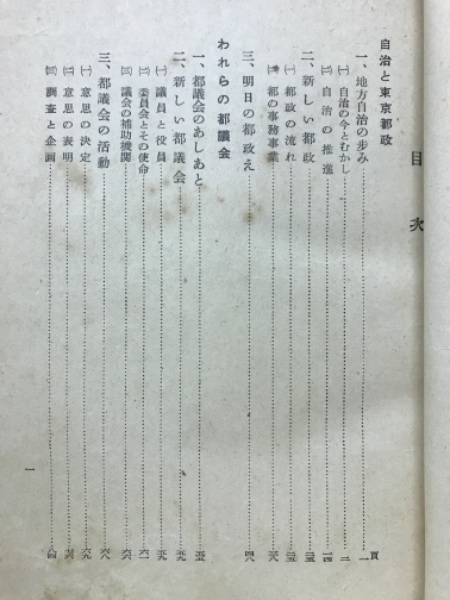 目次
自治と東京都政
頁
一、地方自治の歩み……一
㈠自治の今とむかし……二
㈡自治の推進……一四
二、新しい都政……二五
㈠都政の流れ……二五
都の事務事業……三八
三、明日の都政え……四八
われらの都議会
一、都議会のあしあと……五五
二、新しい都議会……五九
㈠議員と役員……五九
㈡委員会とその使命……六一
㈢議会の補助機関……六六
三、都議会の活動……六八
㈠意思の決定……六九
㈡意思の表明……七六
㈢調査と企画……八四
一